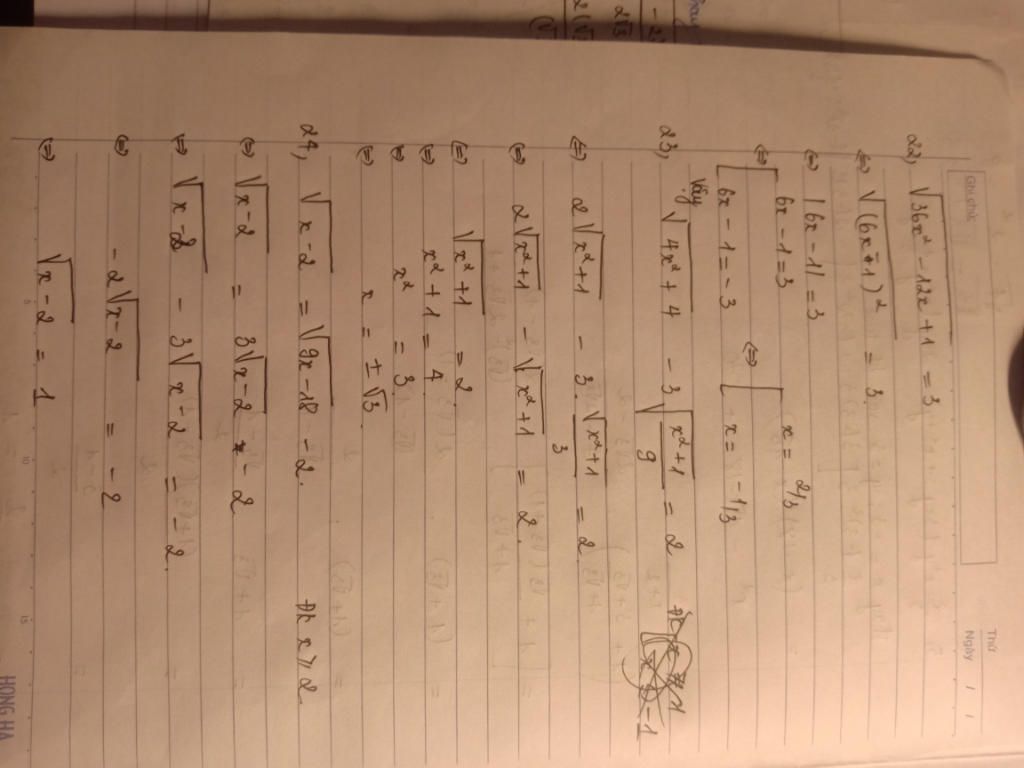 Ghi chú
Thứ
Ngày / /
22, √(36x² - 12x + 1) = 3
⇔ √((6x - 1)²) = 3
⇔ |6x - 1| = 3
⇔ [ 6x - 1 = 3 ⇔ [ x = 2/3
6x - 1 = -3 x = -1/3
Vậy
23, √(4x² + 4) - 3√((x² + 1)/9) = 2
⇔ 2√(x² + 1) - 3.√(x² + 1)/3 = 2
⇔ 2√(x² + 1) - √(x² + 1) = 2.
⇔ √(x² + 1) = 2.
⇔ x² + 1 = 4
⇔ x² = 3.
⇔ x = ±√3.
24, √(x - 2) = √(9x - 18) - 2. Đk x ≥ 2
⇔ √(x - 2) = 3√(x - 2) - 2
⇔ √(x - 2) - 3√(x - 2) = -2.
⇔ -2√(x - 2) = -2
⇔ √(x - 2) = 1
HONG HA